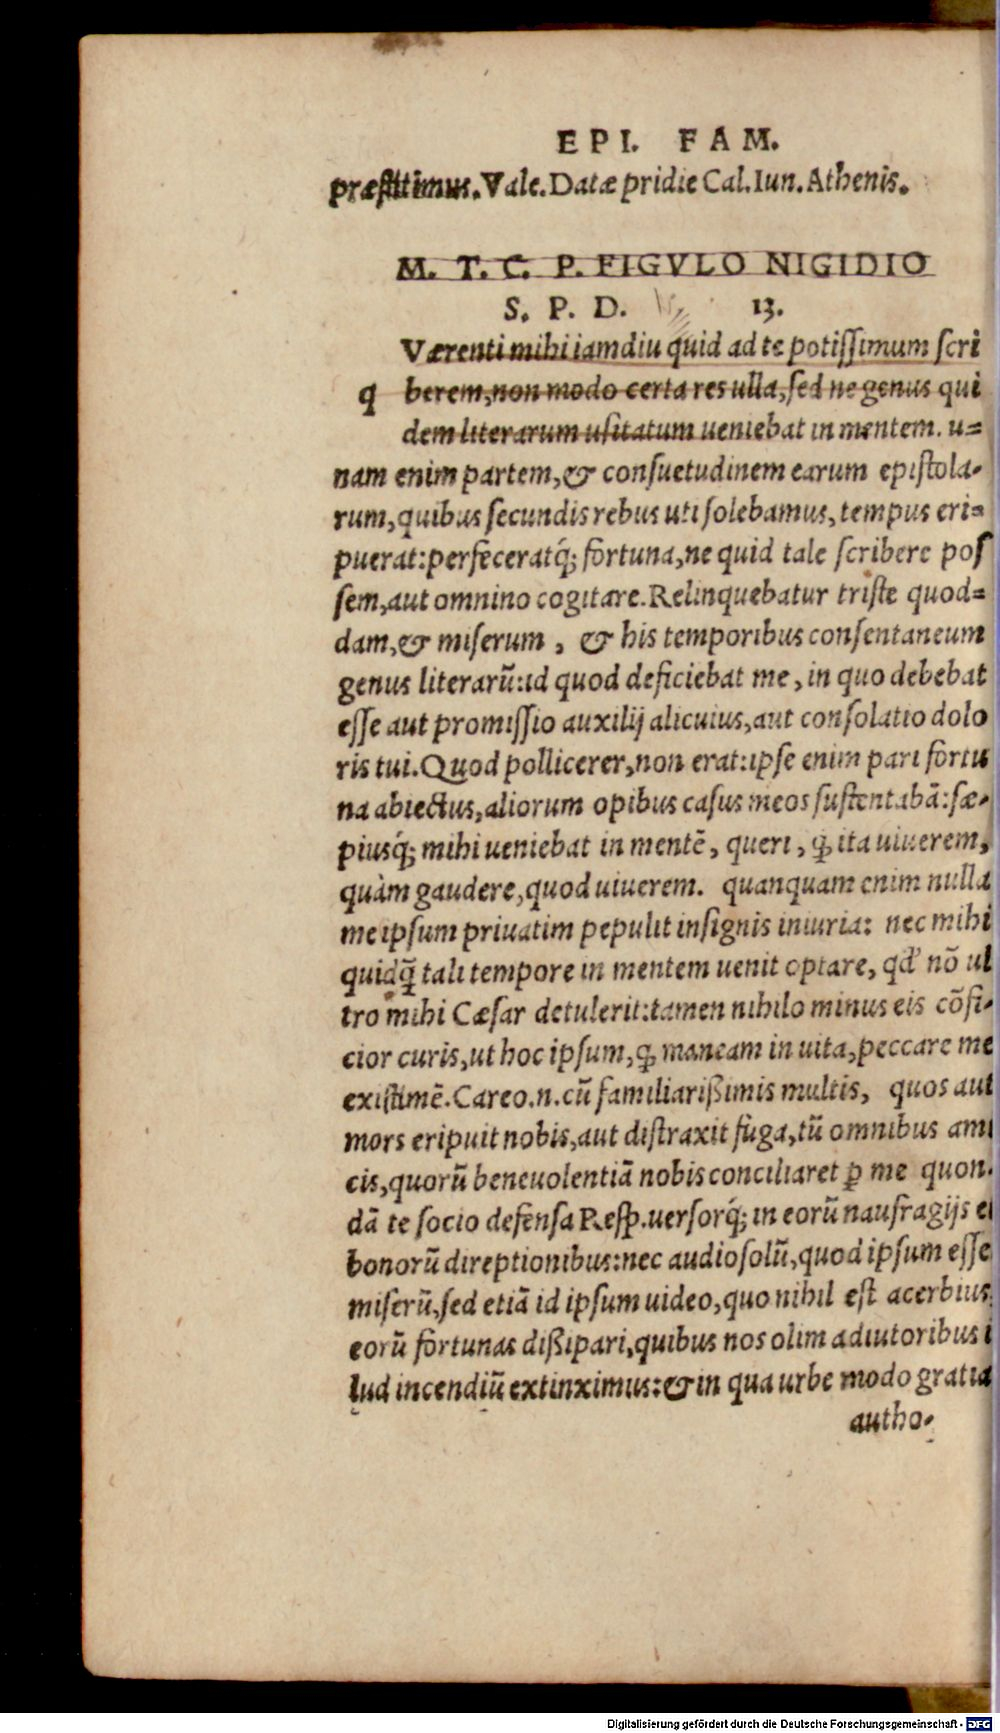 EPI. FAM.
præstitimus. Vale. Datæ pridie Cal. Iun. Athenis.
M. T. C. P. FIGVLO NIGIDIO
S. P. D. 13.
Værenti mihi iamdiu quid ad te potissimum scri
q berem, non modo certa res ulla, sed ne genus qui
dem literarum usitatum ueniebat in mentem. u=
nam enim partem, & consuetudinem earum epistola-
rum, quibus secundis rebus uti solebamus, tempus eri=
puerat: perfeceratq́; fortuna, ne quid tale scribere pos
sem, aut omnino cogitare. Relinquebatur triste quod=
dam, & miserum, & his temporibus consentaneum
genus literarũ: id quod deficiebat me, in quo debebat
esse aut promissio auxilij alicuius, aut consolatio dolo
ris tui. Quod pollicerer, non erat: ipse enim pari fortu
na abiectus, aliorum opibus casus meos sustentabã: sæ-
piusq́; mihi ueniebat in mentẽ, queri, ꝙ ita uiuerem,
quàm gaudere, quod uiuerem. quanquam enim nulla
me ipsum priuatim pepulit insignis iniuria: nec mihi
quidꝗ̃ tali tempore in mentem uenit optare, qd' nõ ul
tro mihi Cæsar detulerit: tamen nihilo minus eis cõfi-
cior curis, ut hoc ipsum, ꝙ maneam in uita, peccare me
existimẽ. Careo.n.cũ familiarißimis multis, quos aut
mors eripuit nobis, aut distraxit fuga, tũ omnibus ami
cis, quorũ beneuolentiã nobis conciliaret ꝑ me quon-
dã te socio defensa Resp. uersorq́; in eorũ naufragijs et
bonorũ direptionibus: nec audio solũ, quod ipsum esse
miserũ, sed etiã id ipsum uideo, quo nihil est acerbius,
eorũ fortunas dißipari, quibus nos olim adiutoribus i
lud incendiũ extinximus: & in qua urbe modo gratia
autho-
Digitalisierung gefördert durch die Deutsche Forschungsgemeinschaft - DFG